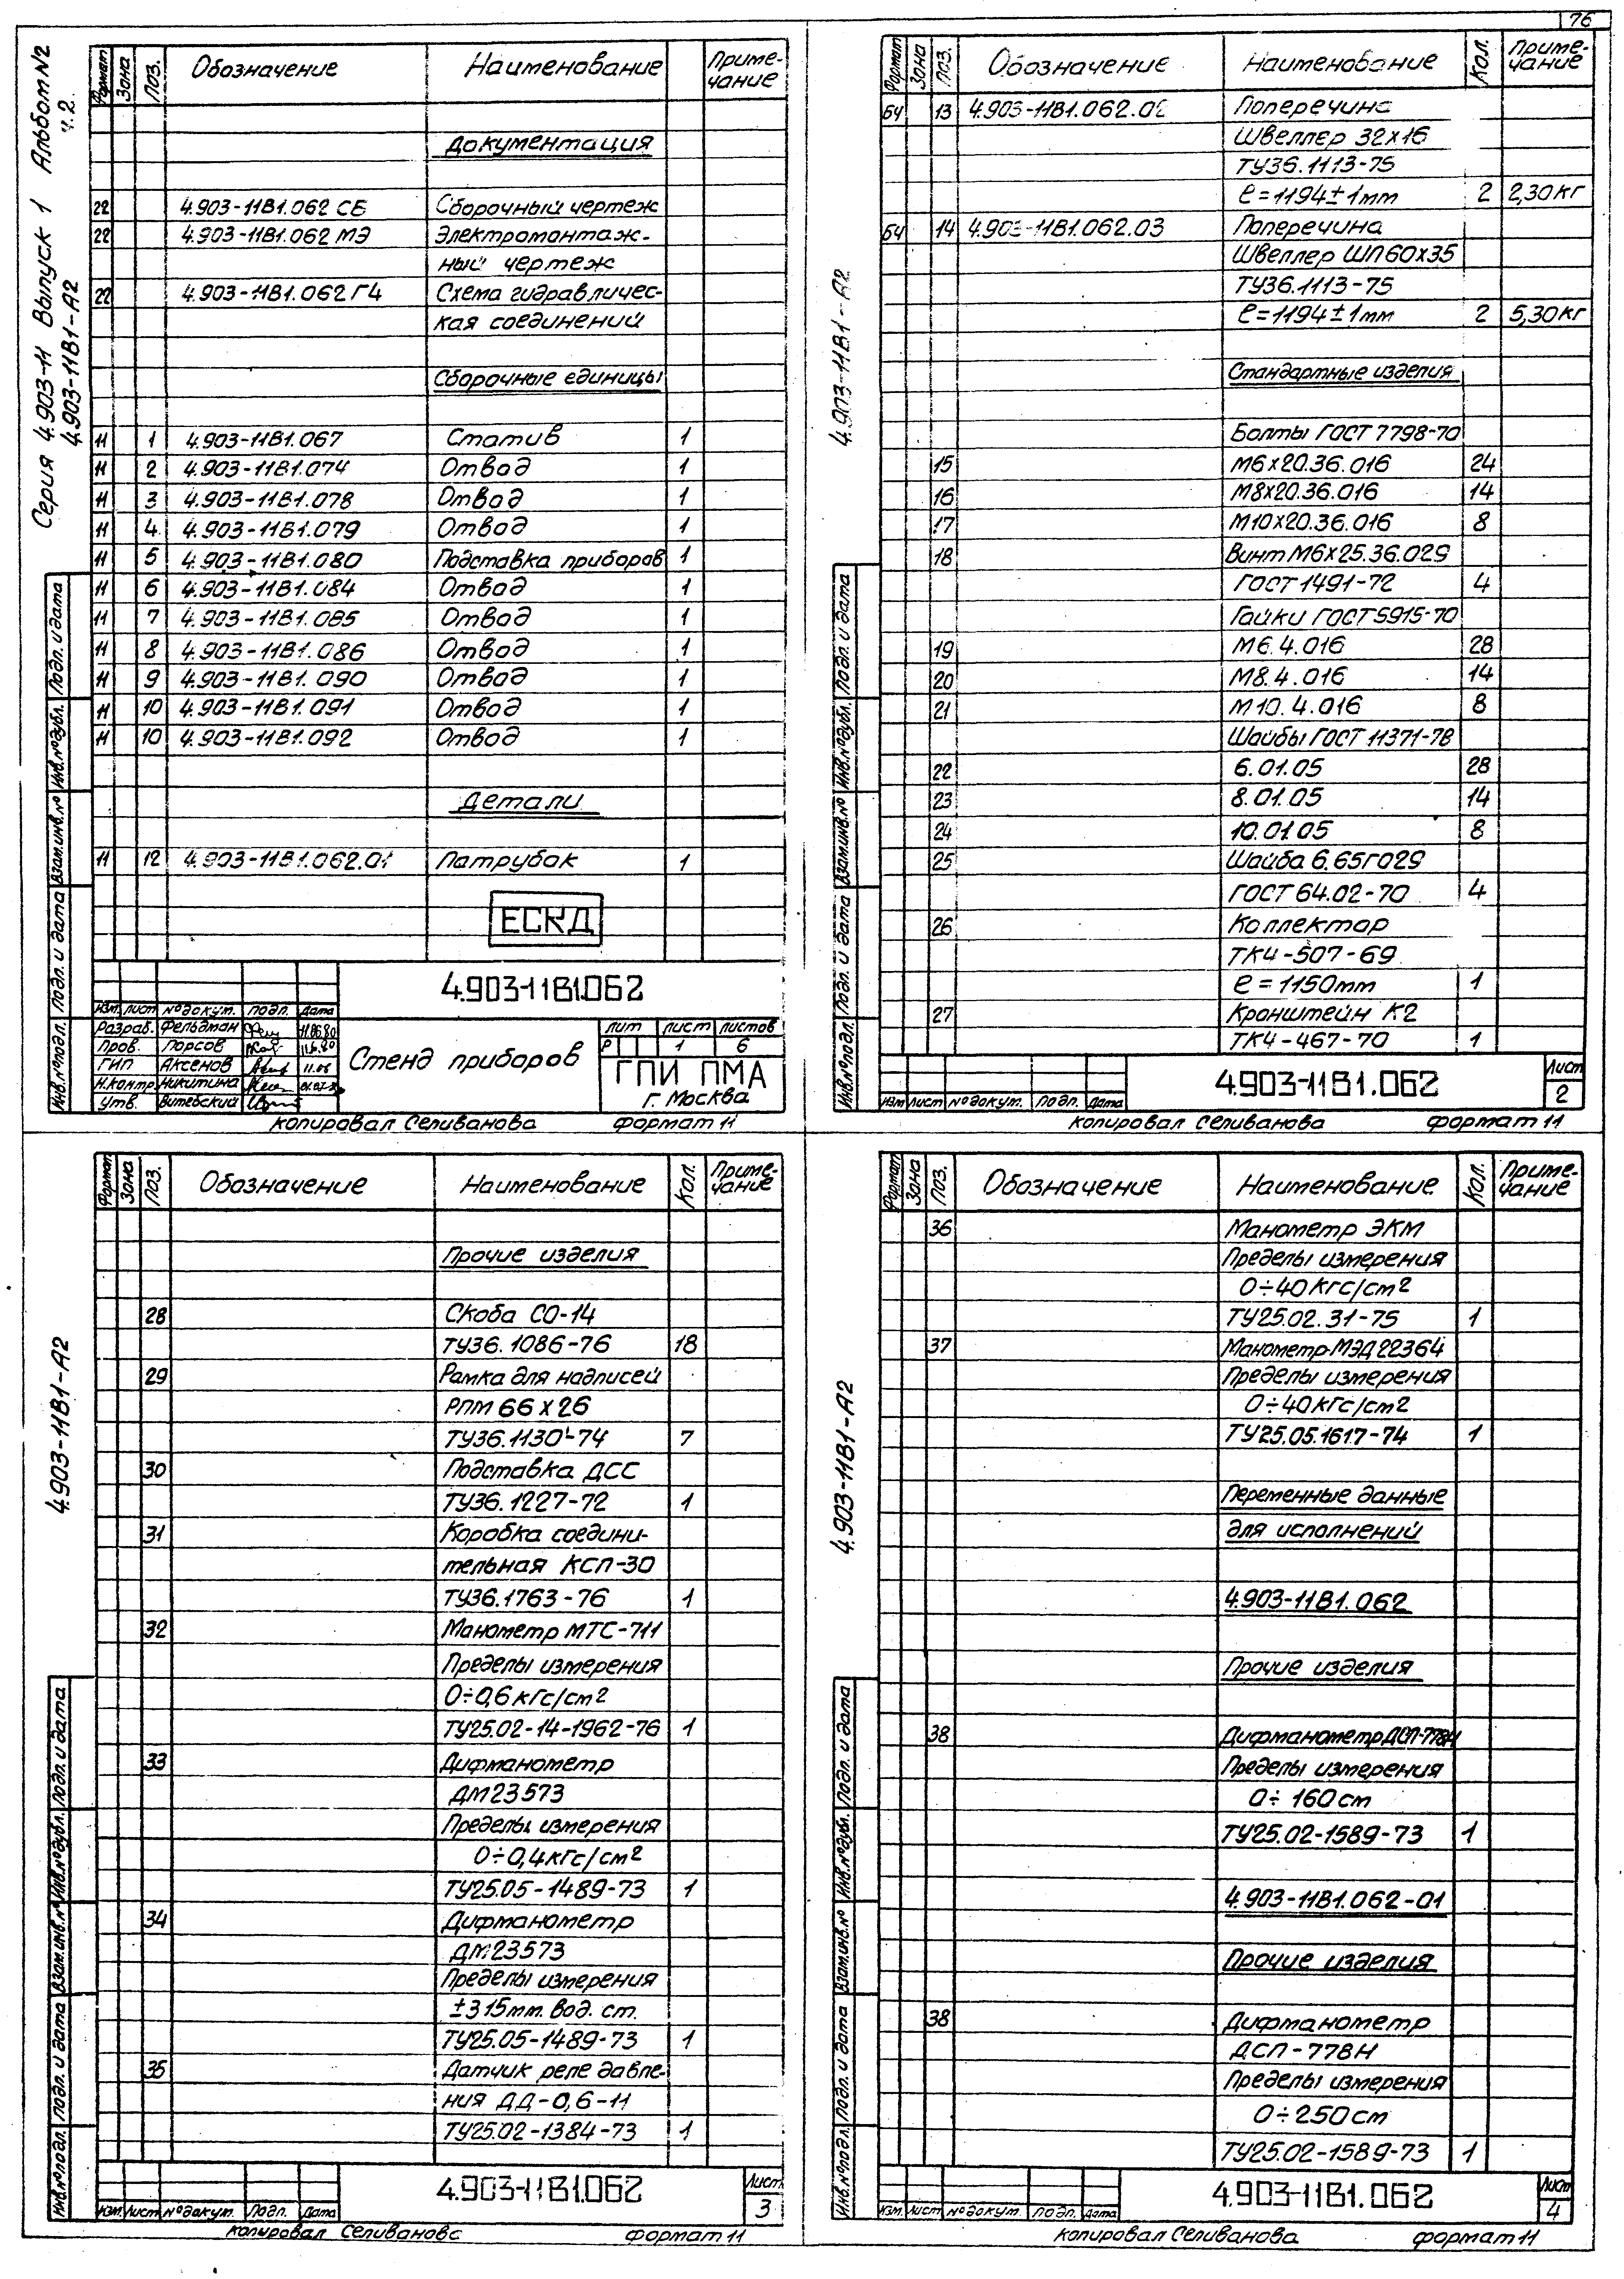 76
Серия 4.903-11 Выпуск 1 Альбом №2
ч.2.
4.903-11В1-А2
Формат Зона Поз. Обозначение Наименование Приме-
чание
Документация
22 4.903-11В1.062 СБ Сборочный чертеж
22 4.903-11В1.062 МЭ Электромонтаж-
ный чертеж
22 4.903-11В1.062 Г4 Схема гидравличес-
кая соединений
Сборочные единицы
11 1 4.903-11В1.067 Статив 1
11 2 4.903-11В1.074 Отвод 1
11 3 4.903-11В1.078 Отвод 1
11 4 4.903-11В1.079 Отвод 1
11 5 4.903-11В1.080 Подставка приборов 1
11 6 4.903-11В1.084 Отвод 1
11 7 4.903-11В1.085 Отвод 1
11 8 4.903-11В1.086 Отвод 1
11 9 4.903-11В1.090 Отвод 1
11 10 4.903-11В1.091 Отвод 1
11 10 4.903-11В1.092 Отвод 1
Детали
11 12 4.903-11В1.062.01 Патрубок 1
ЕСКД
4.903-11В1.062
Изм. Лист № докум. Подп. Дата
Разраб. Фельдман 11.06.80
Пров. Порсов 11.6.80
ГИП Аксенов 11.06
Н.контр. Никитина
Утв. Витебский
Стенд приборов
Лит Лист Листов
Р 1 6
ГПИ ПМА
г. Москва
Инв.№подл. Подп. и дата Взам.инв.№ Инв.№дубл. Подп. и дата
Копировал Селиванова Формат 11
4.903-11В1-А2
Формат Зона Поз. Обозначение Наименование Кол. Приме-
чание
БЧ 13 4.903-11В1.062.02 Поперечина
Швеллер 32х16
ТУ36.1113-75
ℓ=1194±1мм 2 2,30кг
БЧ 14 4.903-11В1.062.03 Поперечина
Швеллер ШП60х35
ТУ36.1113-75
ℓ=1194±1мм 2 5,30кг
Стандартные изделия
Болты ГОСТ 7798-70
15 М6х20.36.016 24
16 М8х20.36.016 14
17 М10х20.36.016 8
18 Винт М6х25.36.029
ГОСТ 1491-72 4
Гайки ГОСТ 5915-70
19 М6.4.016 28
20 М8.4.016 14
21 М10.4.016 8
Шайбы ГОСТ 11371-78
22 6.01.05 28
23 8.01.05 14
24 10.01.05 8
25 Шайба 6.65Г029
ГОСТ 64.02-70 4
26 Коллектор
ТК4-507-69
ℓ=1150мм 1
27 Кронштейн К2
ТК4-467-70 1
Инв.№подл. Подп. и дата Взам.инв.№ Инв.№дубл. Подп. и дата
Изм Лист № докум. Подп. Дата
4.903-11В1.062
Лист
2
Копировал Селиванова Формат 11
4.903-11В1-А2
Формат Зона Поз. Обозначение Наименование Кол. Приме-
чание
Прочие изделия
28 Скоба СО-14
ТУ36.1086-76 18
29 Рамка для надписей
РПМ 66х26
ТУ36.1130-74 7
30 Подставка ДСС
ТУ36.1227-72 1
31 Коробка соедини-
тельная КСП-30
ТУ36.1763-76 1
32 Манометр МТС-711
Пределы измерения
0÷0,6кгс/см2
ТУ25.02-14-1962-76 1
33 Дифманометр
ДМ23573
Пределы измерения
0÷0,4кгс/см2
ТУ25.05-1489-73 1
34 Дифманометр
ДМ23573
Пределы измерения
±315мм. вод. ст.
ТУ25.05-1489-73 1
35 Датчик реле давле-
ния ДД-0,6-11
ТУ25.02-1384-73 1
Инв.№подл. Подп. и дата Взам.инв.№ Инв.№дубл. Подп. и дата
Изм. Лист № докум. Подп. Дата
4.903-11В1.062
Лист
3
Копировал Селиванова Формат 11
4.903-11В1-А2
Формат Зона Поз. Обозначение Наименование Кол. Приме-
чание
36 Манометр ЭКМ
Пределы измерения
0÷40кгс/см2
ТУ25.02.31-75 1
37 Манометр МЭД22364
Пределы измерения
0÷40кгс/см2
ТУ25.05.1617-74 1
Переменные данные
для исполнений
4.903-11В1.062
Прочие изделия
38 Дифманометр ДСП-778Н
Пределы измерения
0÷160см
ТУ25.02-1589-73 1
4.903-11В1.062-01
Прочие изделия
38 Дифманометр
ДСП-778Н
Пределы измерения
0÷250см
ТУ25.02-1589-73 1
Инв.№подл. Подп. и дата Взам.инв.№ Инв.№дубл. Подп. и дата
Изм. Лист № докум. Подп. Дата
4.903-11В1.062
Лист
4
Копировал Селиванова Формат 11